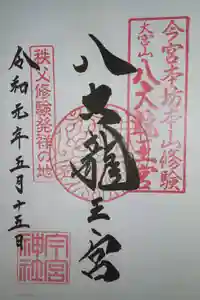 今宮本坊本山修験
大宮山
八大龍王宮
八大龍王宮
秩父修験発祥の地
令和元年五月十五日
今宮
神社